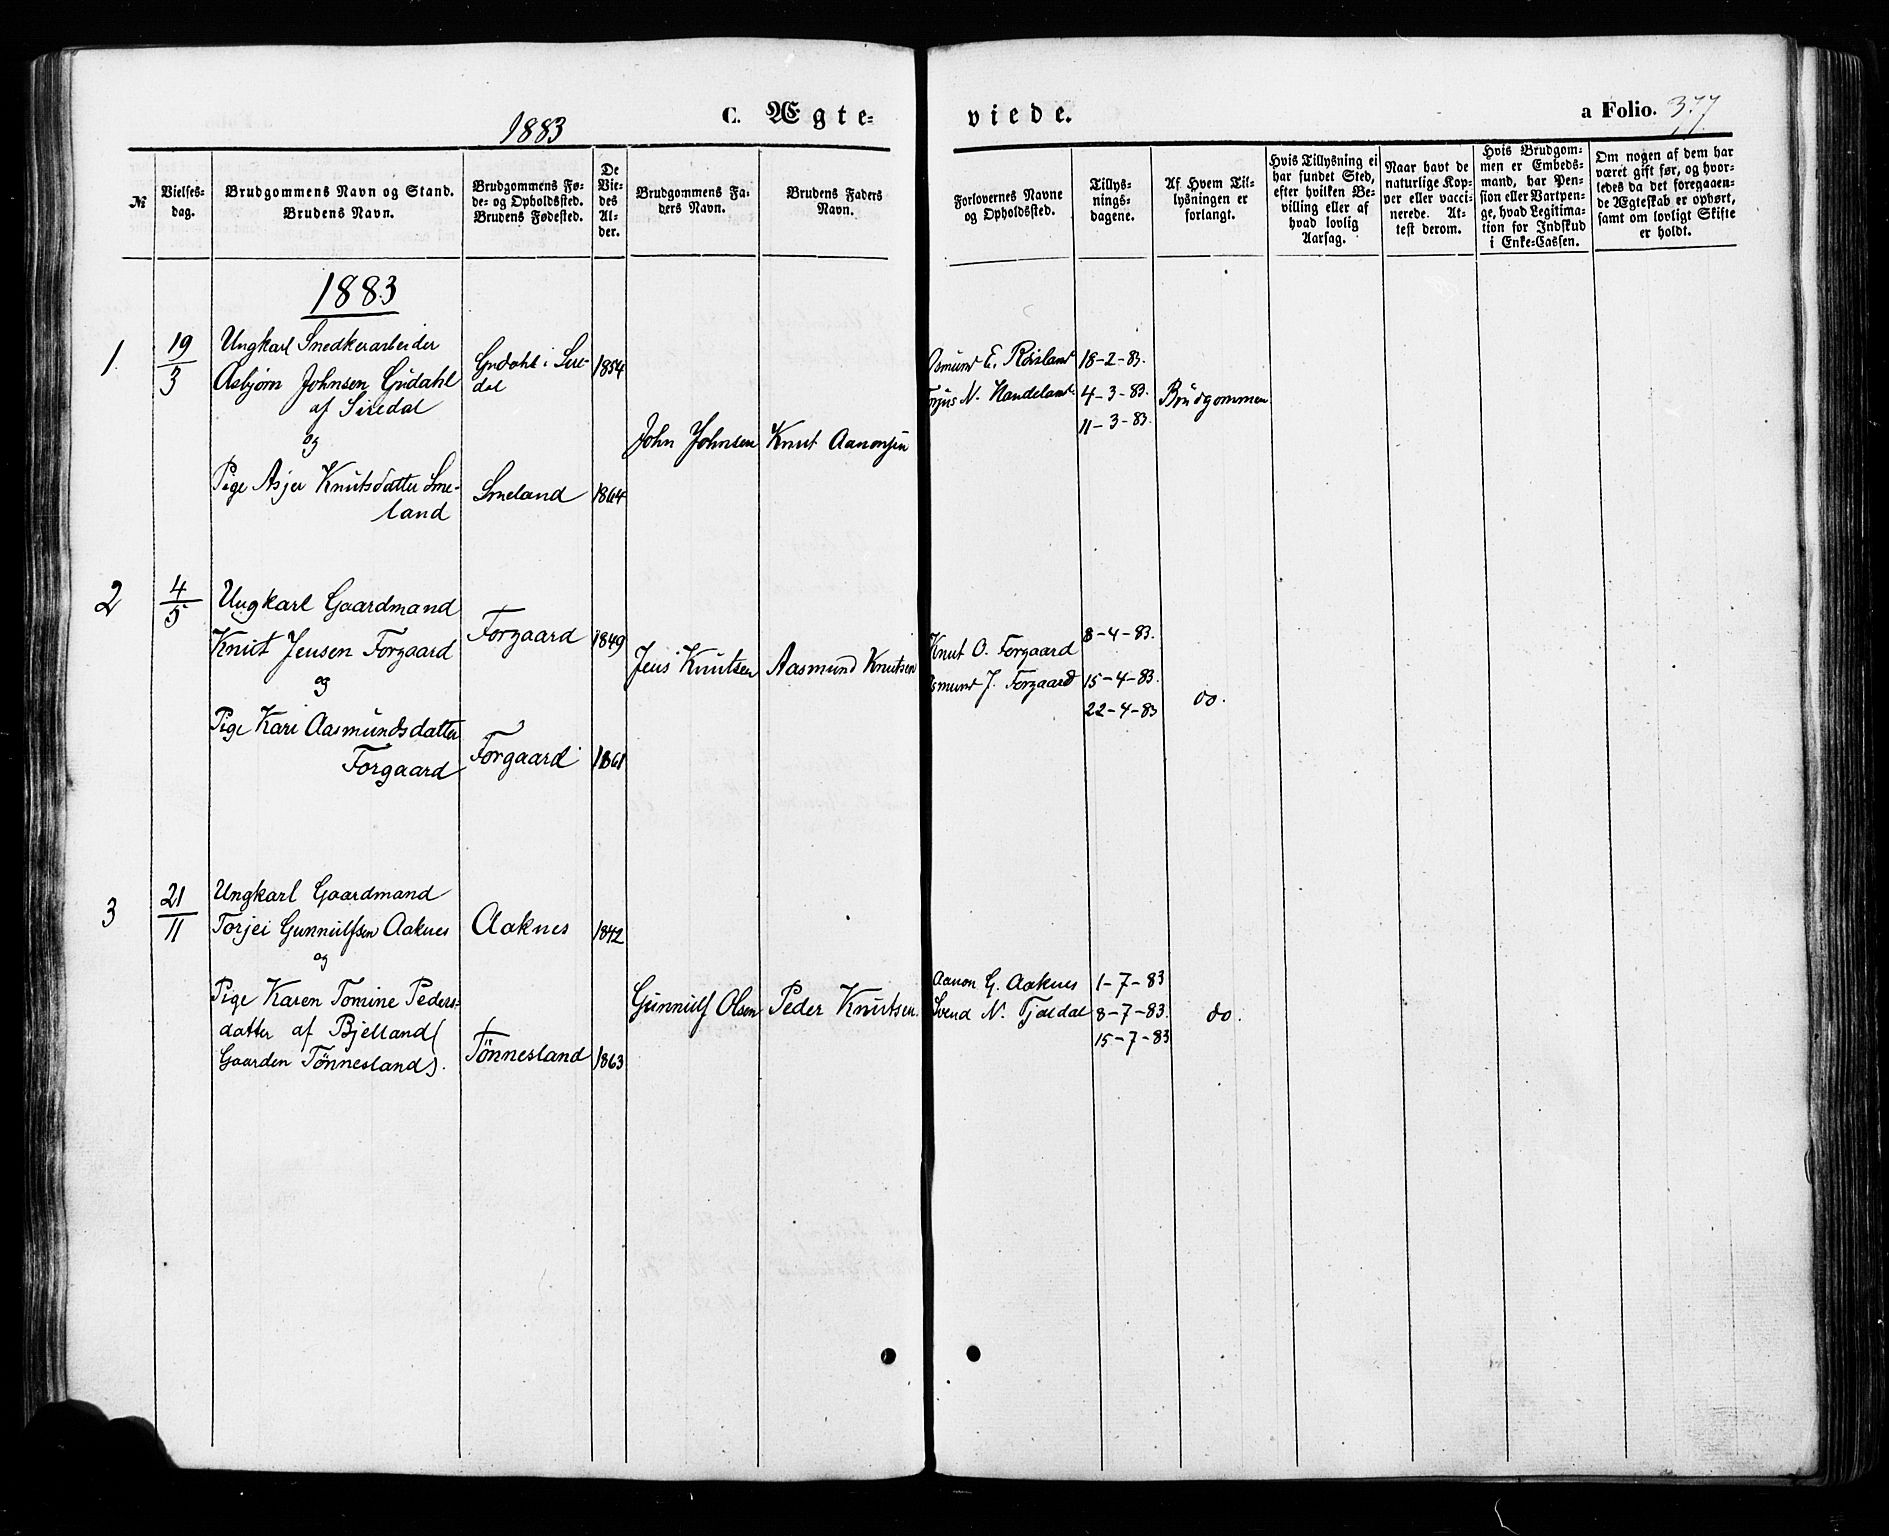 1883
C. Ægte-
viede.
a Folio. 377
№
Vielses-
dag.
Brudgommens Navn og Stand.
Brudens Navn.
Brudgommens Fø-
de- og Opholdssted.
Brudens Fødested.
De
Vie-
des
Al-
der.
Brudgommens Fa-
ders Navn.
Brudens Faders
Navn.
Forlovernes Navne
og Opholdssted.
Tillys-
nings-
dagene.
Af Hvem Til-
lysningen er
forlangt.
Hvis Tillysning ei
har fundet Sted,
efter hvilken Be-
villing eller af
hvad lovlig
Aarsag.
Naar havt de
naturlige Kop-
per eller vacci-
nerede. At-
test derom.
Hvis Brudgom-
men er Embeds-
mand, har Pen-
sion eller Vartpen-
ge, hvad Legitima-
tion for Indskud
i Enke-Cassen.
Om nogen af dem har
været gift før, og hvor-
ledes da det foregaaen-
de Ægteskab er ophørt,
samt om lovligt Skifte
er holdt.
1883
1.
19
3
Ungkarl Snedkerarbeider
Asbjørn Johnsen Gudahl
af Siredal
og
Pige Asjer Knutsdatter Sme-
land
Gudahl i Sire-
dal
Smeland
1854
1864
John Johnsen
Knut Aanonsen
Asmund E. Røisland
Torjus N. Handeland
18-2-83.
4-3-83.
11-3-83.
Brudgommen
2
4
5
Ungkarl Gaardmand
Knut Jensen Forgaard
og
Pige Kari Aasmundsdatter
Forgaard
Forgaard
Forgaard
1849
1861
Jens Knutsen
Aasmund Knutsen
Knut O. Forgaard
Asmund J. Forgaard
8-4-83.
15-4-83.
22-4-83
do.
3
21
11
Ungkarl Gaardmand
Torjei Gunnulfsen Aaknes
og
Pige Karen Tomine Peders-
datter af Bjelland (
Gaarden Tönnesland).
Aaknes
Tönnesland
1842
1863
Gunnulf Olsen
Peder Knutsen.
Aanon G. Aaknes
Svend N. Tjaldal
1-7-83
8-7-83.
15-7-83
do.